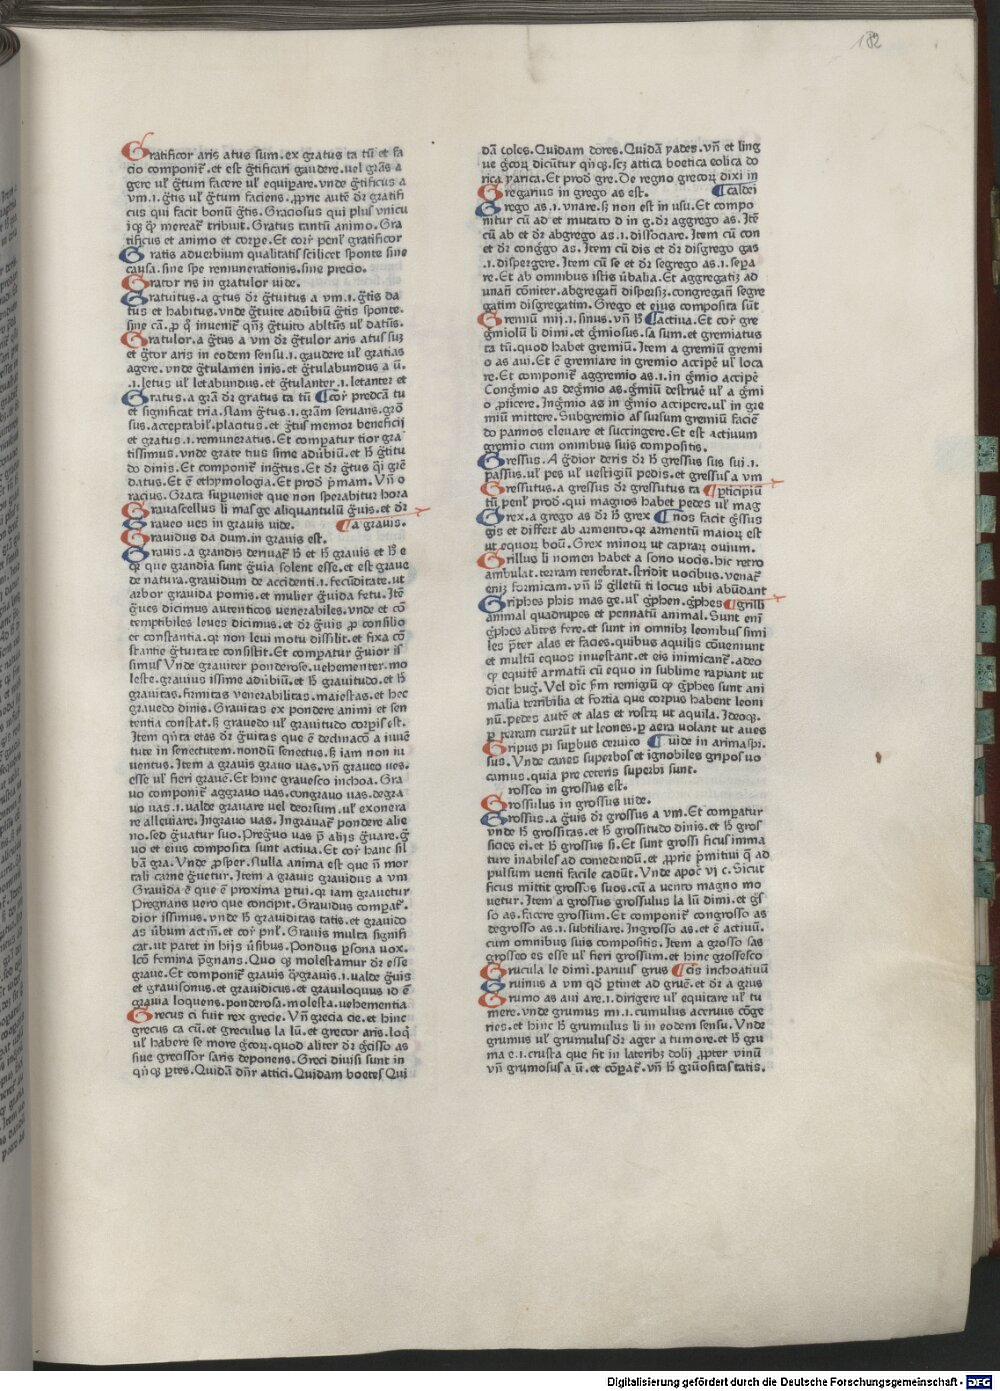 182
Gratificor aris atus sum. ex gratus ta tū et fa
cio componit᷑. et est g̃tificari gaudere. uel grãs a
gere ul̕ g̃tum facere ul̕ equipare. vnde g̃tificus a
vm .i. g̃tis ul̕ g̃tum faciens. ꝓprie autē dr̃ gratifi
cus qui facit bonū g̃tis. Graciosus qui plus vnicu
iqꝫ qͥ mereat᷑ tribuit. Gratus tantū animo. Gra
tificus et animo et corꝑe. Et cor᷑ penl̕ gratificor
Gratis aduerbium qualitatis scilicet sponte sine
causa. sine spe remunerationis. sine precio.
Grator ris in gratulor uide.
Gratuitus. a g̃tus dr̃ g̃tuitus a vm .i. g̃tis da
tus et habitus. vnde g̃tuite adūbiū g̃tis sponte.
sine cā. ꝓ qͦ inuenit᷑ qn̄qꝫ g̃tuito abltūs ul̕ datūs.
Gratulor. a g̃tus a vm dr̃ g̃tulor aris atus suꝫ
et g̃tor aris in eodem sensu .i. gaudere ul̕ gratias
agere. vnde g̃tulamen inis. et g̃tulabundus a ū.
.i. letus ul̕ letabundus. et g̃tulanter .i. letanter et
Gratus. a grā dr̃ gratus ta tū ¶ cor᷑ predcām tu
et significat tria. Nam g̃tus .i. grãm seruans. grō
sus. acceptabil̕. placitus. et g̃tus memor beneficij
et gratus .i. remuneratus. Et comꝑatur tior gra
tissimus. vnde grate tius sime adūbiū. et h̄ g̃titu
do dinis. Et componit᷑ ing̃tus. Et dr̃ g̃tus qͥ grē
datus. Et ē ethymologia. Et prod̕ p̄mam. Vn̄ o
racius. Grata supueniet que non sperabitur hora
Grauascellus li masge aliquantulū g̃uis. et dr̃
Graueo ues in grauis uide. ¶ a grauis.
Grauidus da dum. in grauis est.
Grauis. a grandis deriuat᷑ h̄ et h̄ grauis et h̄ e
qͥ que grandia sunt g̃uia solent esse. et est graue
de natura. grauidum de accidenti .i. fecūditate. ut
arbor grauida pomis. et mulier g̃uida fetu. Itē
g̃ues dicimus autenticos venerabiles. vnde et cō
temptibiles leues dicimus. et dr̃ g̃uis ꝓ consilio
et constantia. qꝛ non leui motu dissilit. et fixa cō
stantie g̃uitate consistit. Et comꝑatur g̃uior is
simus Vnde grauiter ponderose. uehementer. mo
leste. grauius issime adūbiū. et h̄ grauitudo. et h̄
grauitas. firmitas venerabilitas. maiestas. et hec
grauedo dinis. Grauitas ex pondere animi et sen
tentia constat. sꝫ grauedo ul̕ grauitudo corꝑis est.
Item qͥnta etas dr̃ g̃uitas que ē declinacō a iuuē
tute in senectutem. nondū senectus. sꝫ iam non iu
uentus. Item a grauis grauo uas. vn̄ graueo ues.
esse ul̕ fieri grauē. Et hinc grauesco inchoa. Gra
uo componit᷑ aggrauo uas. congrauo uas. degra
uo uas .i. ualde grauare uel deorsum. ul̕ exonera
re alleuiare. Ingrauo uas. Ingrauat᷑ pondere alie
no. sed g̃uatur suo. Preg̃uo uas p̄ alijs g̃uare. g̃
uo et eius composita sunt actiua. Et cor᷑ hanc sil
bā gra. Vnde ꝓsꝑer. Nulla anima est que n̄ mor
tali carne g̃uetur. Item a grauis grauidus a vm
Grauida ē que ē proxima ꝑtui. qꝛ iam grauetur
Pregnans uero que concipit. Grauidus comꝑat᷑.
dior issimus. vnde h̄ grauiditas tatis. et grauido
as ūbum actm̄. et cor᷑ pnl̕. Grauis multa signifi
cat. ut patet in hijs ūsibus. Pondus ꝑsona uox.
lcō femina p̄gnans. Quo qꝫ molestamur dr̃ esse
graue. Et componit᷑ grauis qͥgrauis .i. ualde g̃uis
et grauisonus. et grauidicus. et grauiloquus id ē
grauia loquens. ponderosa. molesta. uehementia
Grecus ci fuit rex grecie. Vn̄ grecia cie. et hinc
grecus ca cū. et greculus la lū. et grecor aris. loqͥ
ul̕ habere se more g̃coꝝ. quod aliter dr̃ g̃cisso as
siue grecissor saris deponens. Greci diuisi sunt in
qͥnqꝫ ꝑtes. Quidā dn̄r attici. Quidam boetes Qui
dā eoles. Quidam dores. Quidā yades. vn̄ et ling
ue g̃coꝝ dicūtur qͥnqꝫ. scꝫ attica boetica eolica do
rica yarica. Et prod̕ gre. De regno grecoꝝ dixi in
Gregarius in grego as est. ¶ caldei
Grego as .i. vnare. sꝫ non est in usu. Et compo
nitur cū ad et mutato d in g. dr̃ aggrego as. Itē
cū ab et dr̃ abgrego as .i. dissociare. Item cū con
et dr̃ cong̃go as. Item cū dis et dr̃ disgrego gas
.i. dispergere. Item cū se et dr̃ segrego as .i. seꝑa
re. Et ab omnibus istis ūbalia. Et aggregatiꝫ ad
unañ cōniter. abgregañ disꝑsiꝫ. congregañ segre
gatim disgregatim. Grego et eius composita sūt
Gremiū mij .i. sinus. vn̄ h̄ ¶ actiua. Et cor᷑ gre
g̃miolū li dimi. et g̃miosus. sa sum. et gremiatus
ta tū. quod habet gremiū. Item a gremiū gremi
o as aui. Et ē gremiare in gremio accipē ul̕ loca
re. Et componit᷑ aggremio as .i. in g̃mio accipē
Cong̃mio as deg̃mio as. g̃miū destruē ul̕ a g̃mi
o ꝓiicere. Ing̃mio as in g̃mio accipere. ul̕ in gre
miū mittere. Subgremio as sursum gremiū faciē
do pannos eleuare et succingere. Et est actiuum
gremio cum omnibus suis compositis.
Gressus. A g̃dior deris dr̃ h̄ gressus sus sui .i.
passus. ul̕ pes ul̕ uestigiū pedis. et gressus a vm
Gressutus. a gressus dr̃ gressutus ta ¶ ꝑticipiū
tū penl̕ prod̕. qui magnos habet pedes ul̕ mag
Grex. a grego as dr̃ h̄ grex ¶ nos facit g̃ssus
gis et differt ab armento. qꝛ armentū maioꝝ est
ut equoꝝ boū. Grex minoꝝ ut capraꝝ ouium.
Grillus li nomen habet a sono uocis. hic retro
ambulat. terram tenebrat. stridit uocibus. venat᷑
eniꝫ formicam. vn̄ h̄ g̃lletū ti locus ubi abūdant
Griphes phis mas ge. ul̕ g̃phen. g̃phes ¶ grilli
animal quadrupes et pennatū animal. Sunt enī
g̃phes alites fere. et sunt in omnibꝫ leonibus simi
les p̄ter alas et facies. quibus aquilis cōueniunt
et multū equos infestant. et eis inimicant᷑. adeo
qͥ equitē armatū cū equo in sublime rapiant ut
dicit hug̃. Vel dic s̄m remigiū qͥ g̃phes sunt ani
malia terribilia et fortia que corpus habent leoni
nū. pedes autē et alas et rostrꝝ ut aquila. Ideoqꝫ.
ꝑ terram currūt ut leones. ꝑ aera volant ut aues
Gripus pi suꝑbus ceruico ¶ uide in arimaspi.
sus. Vnde canes superbos et ignobiles gripos uo
camus. quia pre ceteris superbi sunt.
rosseo in grossus est.
Grossulus in grossus uide.
Grossus. a g̃uis dr̃ grossus a vm. Et comꝑatur
vnde h̄ grossitas. et h̄ grossitudo dinis. et h̄ gros
sicies ei. et h̄ grossus si. Et sunt grossi ficus imma
ture inabiles ad comedendū. et ꝓprie p̄mitiui qͥ ad
pulsum venti facile cadūt. Vnde apoc̕ vj c. Sicut
ficus mittit grossos suos. cū a uento magno mo
uetur. Item a grossus grossulus la lū dimi. et g̃s
so as. facere grossum. Et componit᷑ congrosso as
degrosso as .i. subtiliare. Ingrosso as. et ē actiuū.
cum omnibus suis compositis. Item a grosso sas
grosseo es esse ul̕ fieri grossum. et hinc grossesco
Grucula le dimi. paruus grus ¶ cis inchoatiuū
Gruinus a vm qd̕ ꝑtinet ad gruē. et dr̃ a grus
Grumo as aui are .i. dirigere ul̕ equitare ul̕ tu
mere. vnde grumus mi .i. cumulus aceruus cōge
ries. et hinc h̄ grumulus li in eodem sensu. Vnde
grumus ul̕ grumulus dr̃ ager a tumore. et h̄ gru
ma e .i. crusta que fit in lateribꝫ dolij ꝓpter vinū
vn̄ grumosus a ū. et cōꝑat᷑. vn̄ h̄ grūositas tatis.
Digitalisierung gefördert durch die Deutsche Forschungsgemeinschaft - DFG